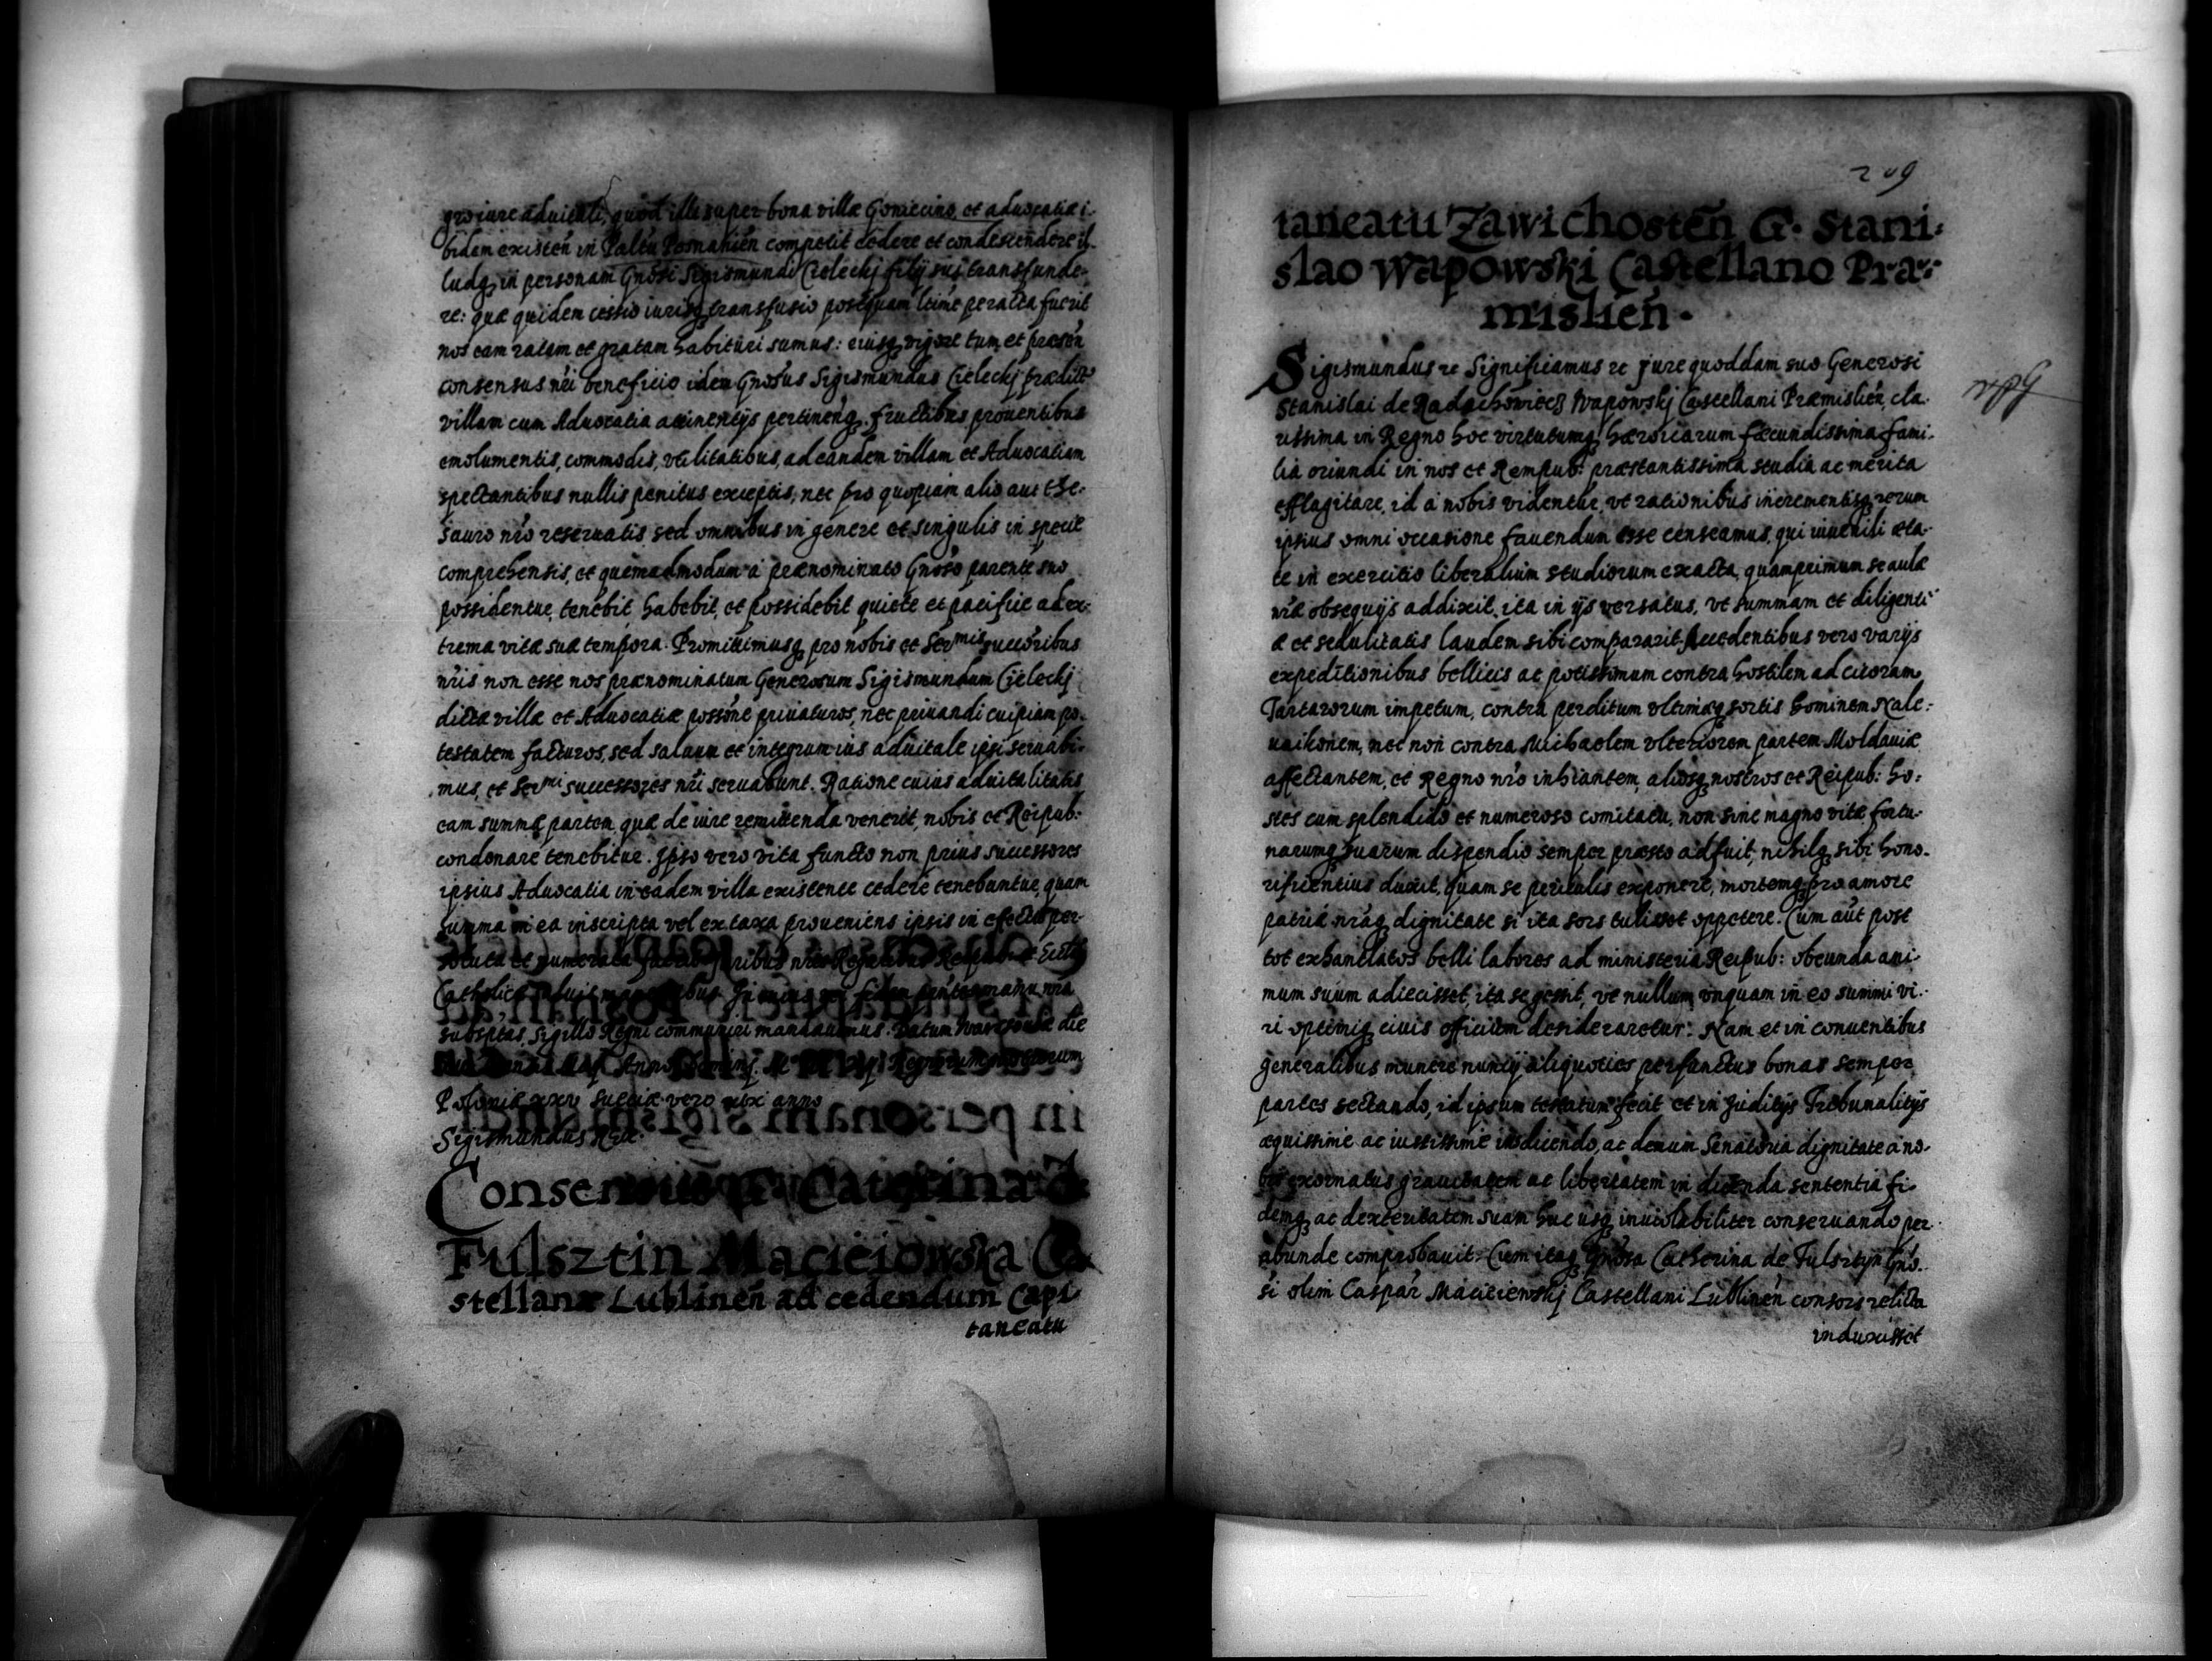 gro iure aduitali, quod illi super bona villæ Goniecino, et aduocatiæ i-
bidem existeñ in Paltu Posnanień competit cedere et condescendere il-
ludq₃ in personam Gnosi Sigismundi Cielecky filij sui transfunde-
re: quæ quidem cessio iurisq₃ transfusio postquam ltime peracta fuerit
nos eam ratam et gratam habituri sumus: eiusq₃ vigore tum et præsen
consensus nři beneficio idem Gnosus Sigismundus Cielecky prædictã
villam cum Aduocatia attinentijs pertineñq₃ fructibus prouentibus
emolumentis, commodis, vtilitatibus, ad eandem villam et Aduocatiam
spectantibus nullis penitus exceptis, nec pro quopiam alio aut the-
sauro nřo reseruatis sed omnibus in genere et singulis in specie
comprehensis, et quemadmodum a prænominato Gnoso parente suo
possidentur, tenebit, habebit, et possidebit quiete et pacifice ad ex-
trema vitæ suæ tempora. Promittimusq₃ pro nobis et Serᵐⁱˢ succoribus
nřis non esse nos prænominatum Generosum Sigismundum Cielecky
dictæ villæ et Aduocatiæ possone priuaturos, nec priuandi cuipiam po-
testatem facturos, sed saluum et integrum ius aduitale ipsi seruabi-
mus, et Serᵐⁱ successores nři seruabunt. Ratione cuius aduitalitatis
eam summæ partem, quæ de iure remittenda venerit, nobis et Reipub:
condonare tenebitur. Ipso vero vita functo non prius successores
ipsius Aduocatia in eadem villa existente cedere tenebuntur, quam
summa in ea inscripta vel ex taxa proueniens ipsis in effectu per
soluta et numerata
Catholicæ
subsptas, Sigillo Regni communiri mandauimus. Datum Varsouiæ die
Anno Domini Regnorum nostrorum
Poloniæ xxiv Sueciæ vero xix anno
Sigismundus Rex.
Consensus G. Catarinæ d
Fulsztin Macieiowska Ca
stellanæ Lublineñ ad cedendum Capi
taneatu
209
taneatu Zawichosteñ G. Stani:
slao Wapowski Castellano Præ:
mislień.
Sigismundus rc Significamus rc jure quoddam suo Generosi
Stanislai de Radochowiecz Wapowskj Castellani Præmislień, cla-
rissima in Regno hoc virtutumq₃ hæroicarum fæcundissima fami-
lia oriundi in nos et Rempub: præstantissima studia ac merita
efflagitare, id à nobis videntur, vt rationibus incrementisq₃ rerum
ipsius omni occasione fauendum esse censeamus, qui iuuenili æta-
te in exercitio liberalium studiorum exacta, quamprimum se aulæ
nřæ obsequijs addixit, ita in ijs versatus, vt summam et diligenti
æ et sedulitatis laudem sibi compararit. Accedentibus vero varijs
expeditionibus bellicis ac potissimum contra hostilem ad Cicoram
Tartarorum impetum, contra perditum vltimæq₃ sortis hominem Nale:
uaikonem, nec non contra Michaelem vlteriorem partem Moldauiæ
affectantem, et Regno nřo inhiantem, aliosq₃ nostros et Reipub: ho:
stes cum splendido et numeroso comitatu, non sine magno vitæ fortu-
narumq₃ suarum dispendio semper præsto adfuit, nihilq₃ sibi hono-
rificentius duxit, quam se periculis exponere, mortemq₃ pro amore
patriæ nřaq₃ dignitate si ita sors tulisset oppetere. Cum aut post
tot exhanclatos belli labores ad ministeria Reipub: obeunda ani-
mum suum adiecisset, ita se gessit, vt nullum vnquam in eo summi vi-
ri optimiq₃ ciuis officium desideraretur. Nam et in conuentibus
generalibus munere nuncij aliquoties perfunctus bonas semper
partes sectando, id ipsum testatum fecit et in Juditijs Tribunalitijs
æquissime ac iustissime ius dicendo, ac demum Senatoria dignitate a no-
bis exornatus grauitatem ac libertatem in dicenda sententia fi-
demq₃ ac dexteritatem suam huc usq₃ inuiolabiliter conseruando per
abunde comprobauit. Cum itaq₃ Gnosa Catherina de Fulsztyn Gno-
si olim Caspar Macieiewskj Castellani Lublineñ consors relicta
induxisset